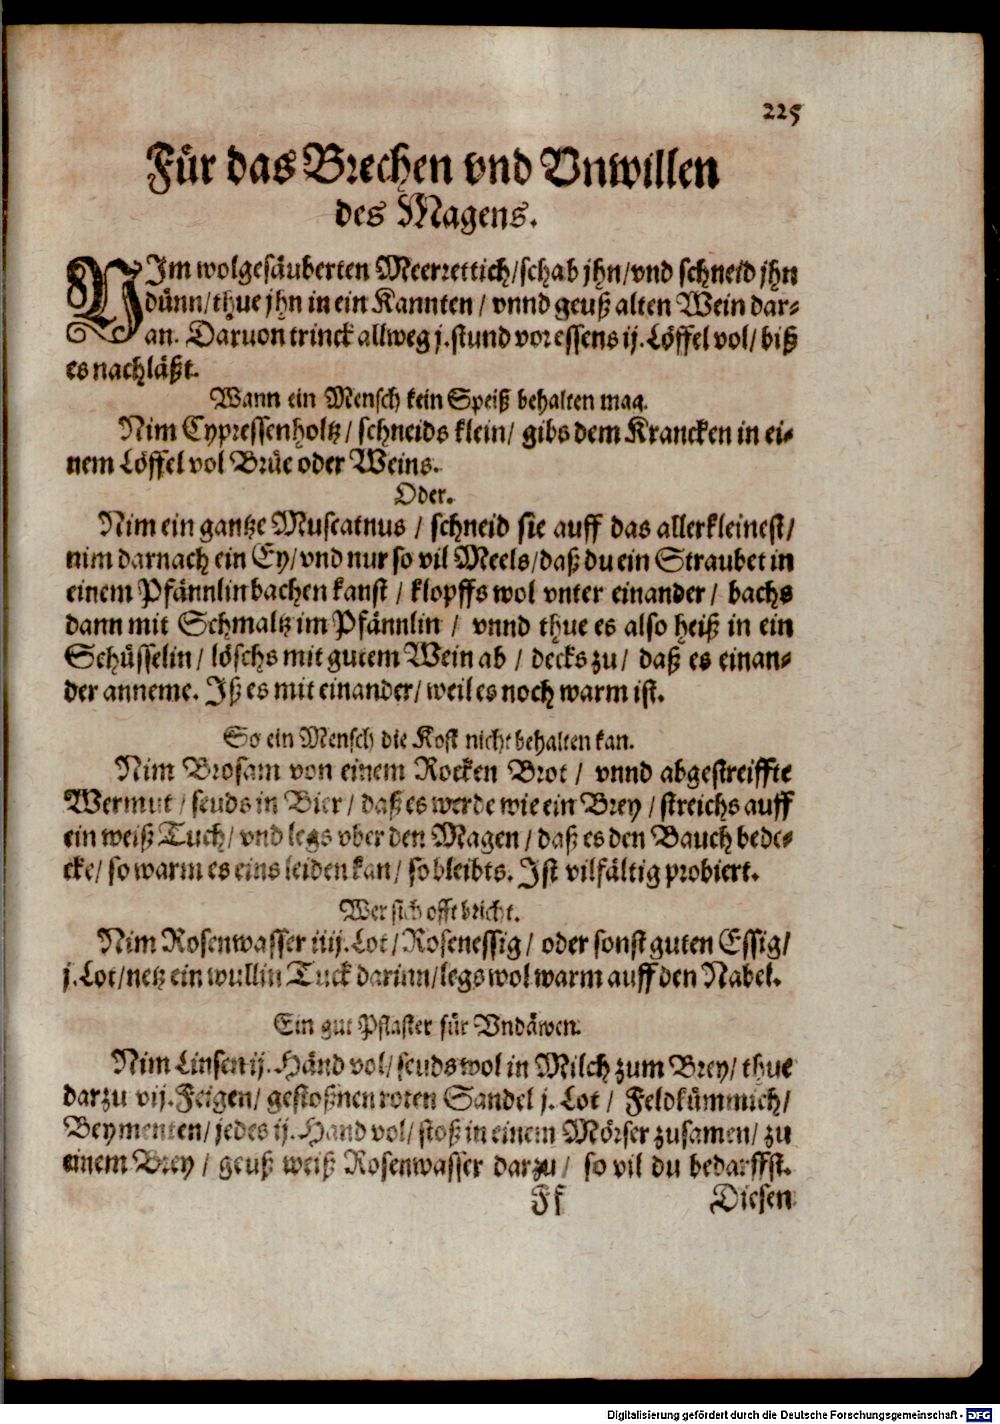 225
Für das Brechen vnd Vnwillen
des Magens.
NIm wolgesäuberten Meerrettich/schab jhn/vnd schneid jhn
dünn/thue jhn in ein Kannten/ vnnd geuß alten Wein dar-
an. Daruon trinck allweg j.stund vor essens ij.Löffel vol/ biß
es nachläßt.
Wann ein Mensch kein Speiß behalten mag.
Nim Cypressenholtz/ schneids klein/ gibs dem Krancken in ei-
nem Löffel vol Brüe oder Weins.
Oder.
Nim ein gantze Muscatnus / schneid sie auff das allerkleinest/
nim darnach ein Ey/vnd nur so vil Meels/daß du ein Straubet in
einem Pfännlin bachen kanst / klopffs wol vnter einander/ bachs
dann mit Schmaltz im Pfännlin / vnnd thue es also heiß in ein
Schüsselin/ löschs mit gutem Wein ab / decks zu/ daß es einan-
der anneme. Iß es mit einander/ weil es noch warm ist.
So ein Mensch die Kost nicht behalten kan.
Nim Brosam von einem Rocken Brot / vnnd abgestreiffte
Wermut / seuds in Bier/ daß es werde wie ein Brey / streichs auff
ein weiß Tuch/ vnd legs vber den Magen/ daß es den Bauch bede-
cke/ so warm es eins leiden kan/ so bleibts. Ist vilfältig probiert.
Wer sich offt bricht.
Nim Rosenwasser iiij.Lot/ Rosenessig/ oder sonst guten Essig/
j.Lot/netz ein wullin Tuck darinn/legs wol warm auff den Nabel.
Ein gut Pflaster für Vndäwen.
Nim Linsen ij. Händ vol/ seuds wol in Milch zum Brey/ thue
darzu vij. Feigen/ gestoßnen roten Sandel j. Lot / Feldkümmich/
Beymenten/ jedes ij. Hand vol/ stoß in einem Mörser zusamen/ zu
einem Brey / geuß weiß Rosenwasser darzu/ so vil du bedarffst.
Ff Diesen
Digitalisierung gefördert durch die Deutsche Forschungsgemeinschaft - DFG